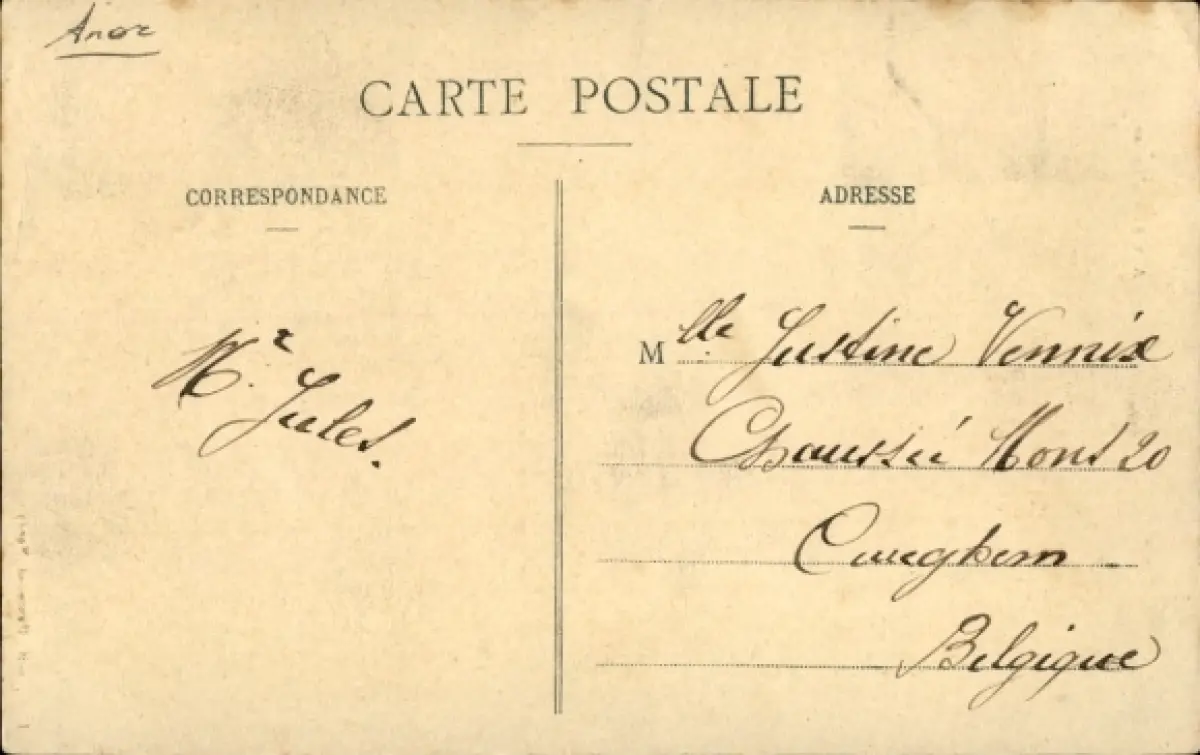 Anor
CARTE POSTALE
CORRESPONDANCE
ADRESSE
Mr. Jules.
Mlle. Justine Vennix
Chaussée Mons 20
Cureghem
Belgique